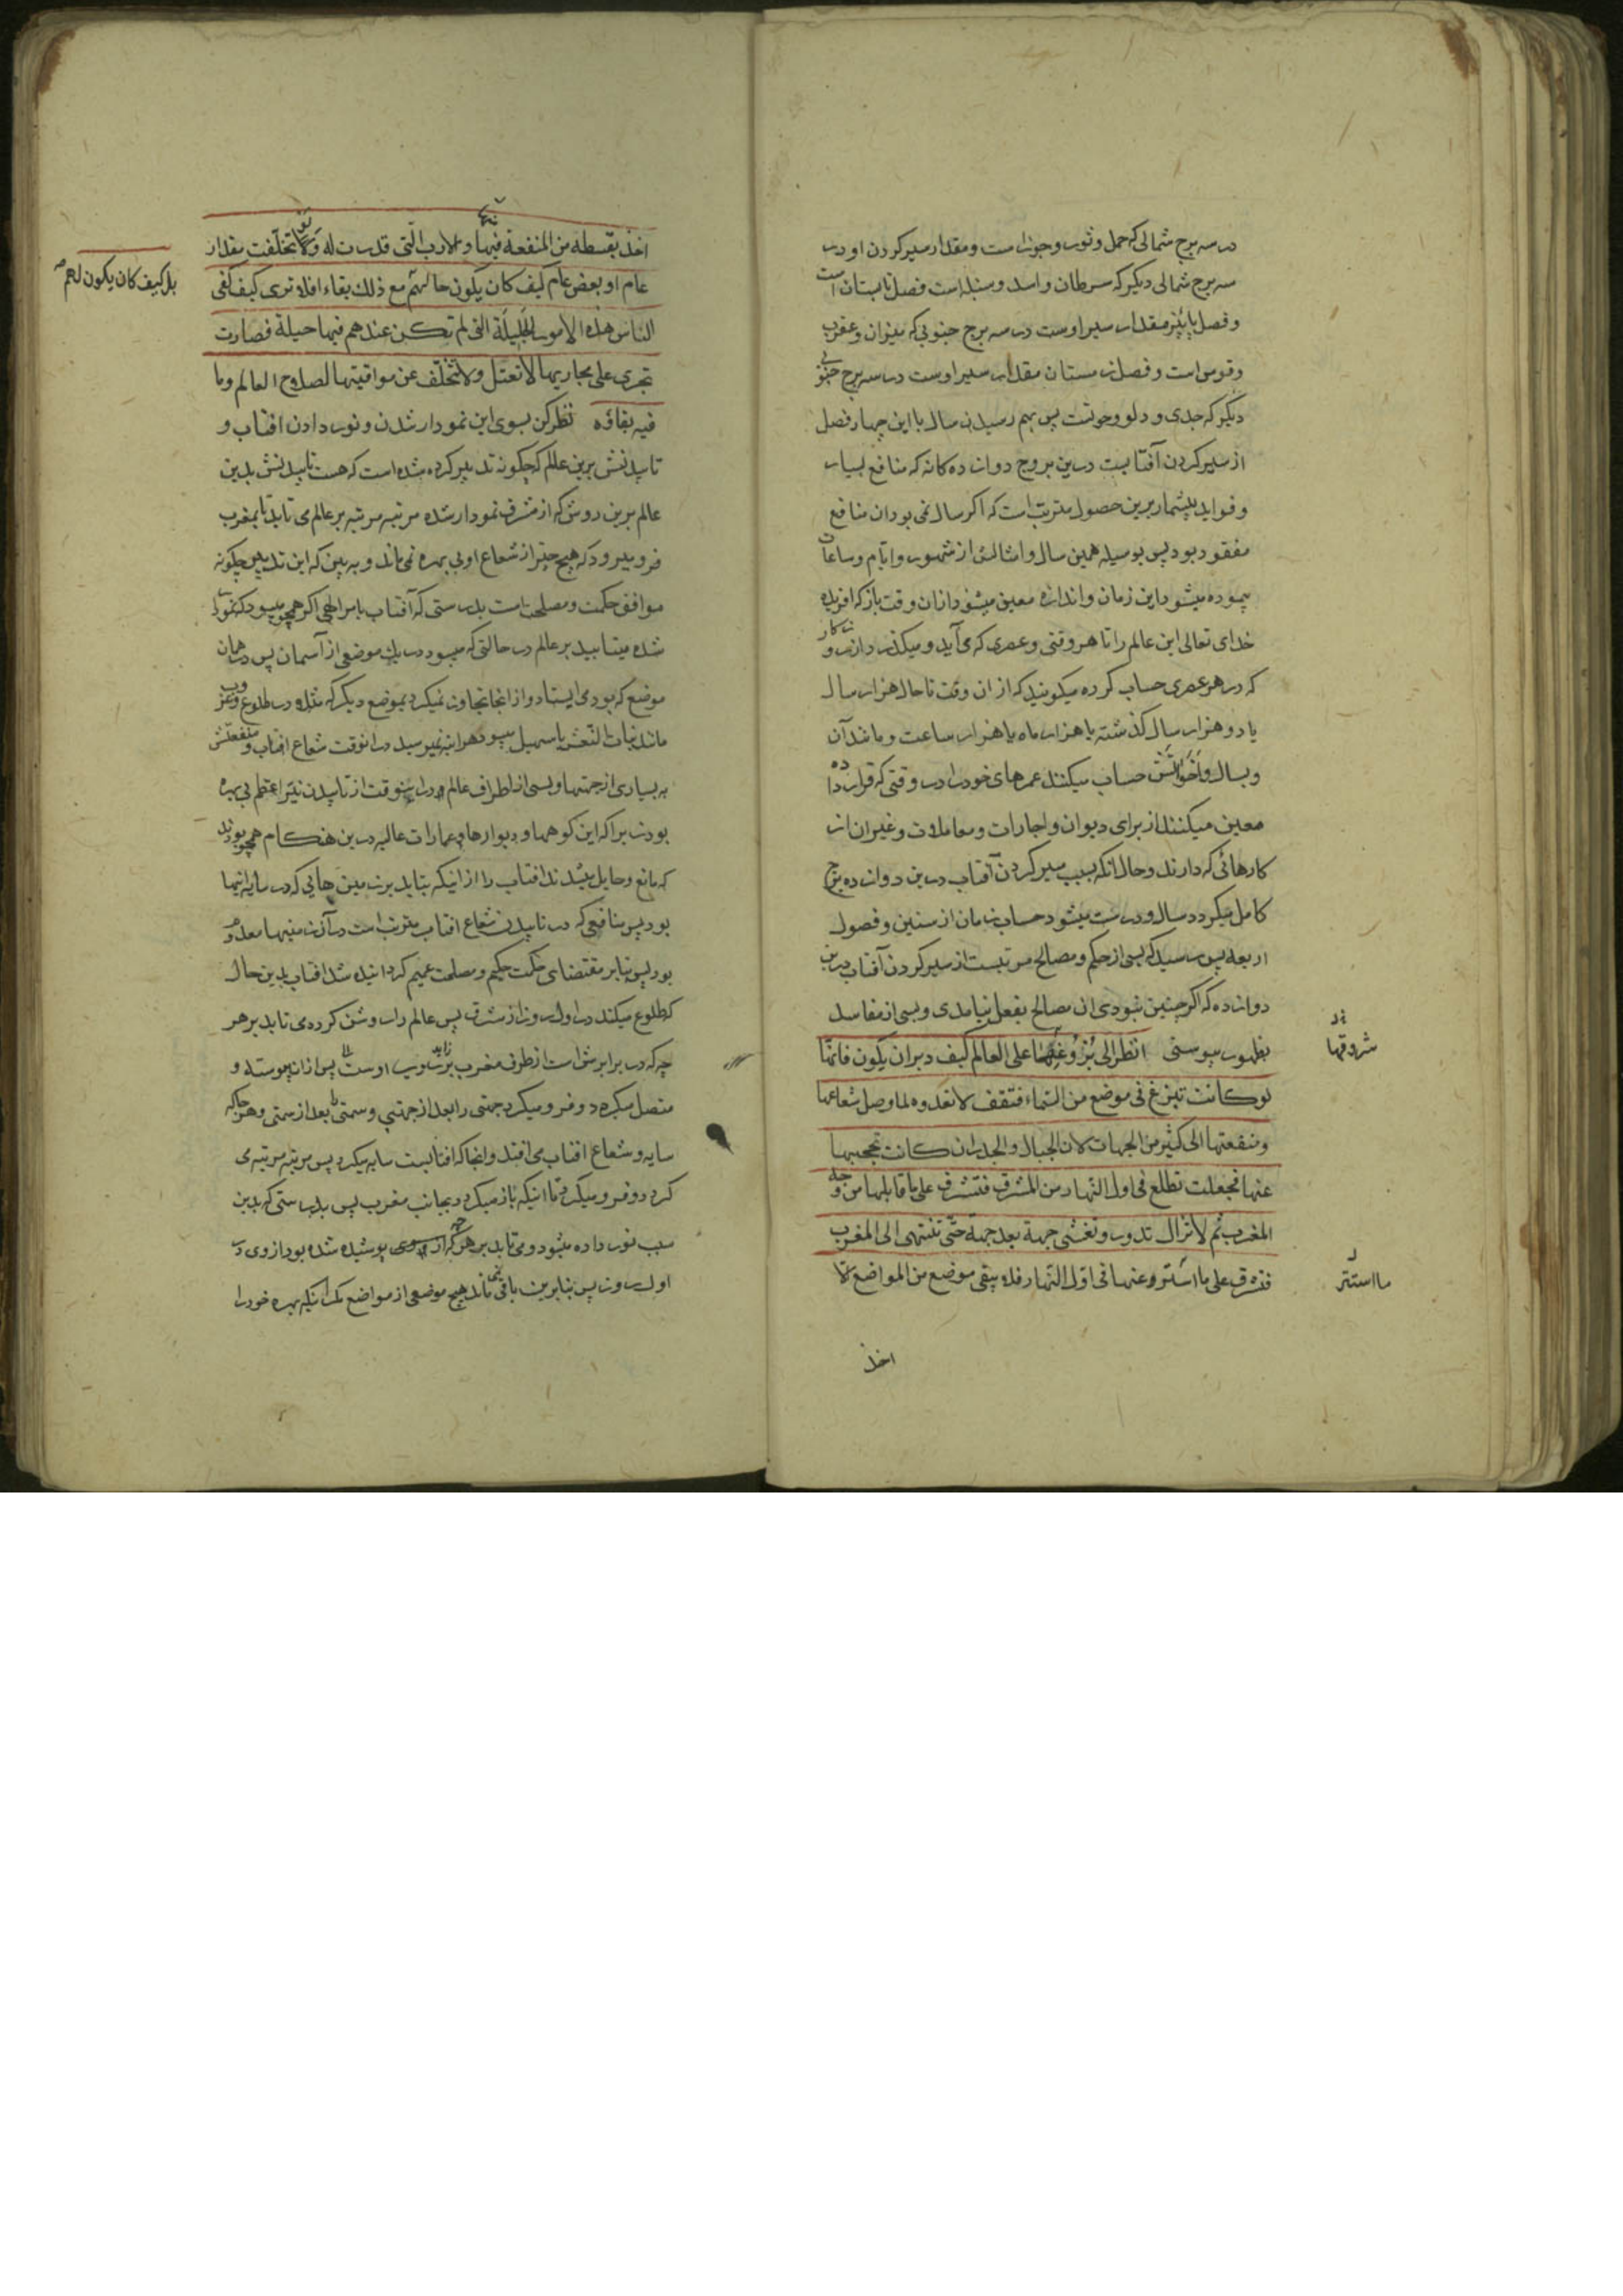 در سه برج شمالی که حمل و ثور و جوزاست و مقدار سیر کردن او در
سه برج شمالی دیگر که سرطان و اسد و سنبله است فصل تابستان است
و فصل پائیز مقدار سیر اوست در سه برج جنوبی که میزان و عقرب
و قوس است و فصل زمستان مقدار سیر اوست در سه برج جنوبی
دیگر که جدی و دلو و حوتست پس بهم رسیدن سال با این چهار فصل
از سیر کردن آفتابست درین بروج دوازده کانه که منافع بسیار
و فواید بیشمار برین حصول مترتب است که اگر سال نمی بود ان منافع
مفقود بود پس بوسیله همین سال و امثالش از شهور و ایام و ساعات
پیموده میشود این زمان و اندازه معین میشود ازان وقت باز که افریده
خدای تعالی این عالم را تا هر وقتی و عصری که می آید و میکذرد ازین رو
که در هر عصری حساب کرده میکویند که از ان وقت تا حال هزار سال
یا دو هزار سال کذشته یا هزار ماه یا هزار ساعت و مانند آن
و بسال و اخواتش حساب میکنند عمرهای خود را در وقتی که قرار داده
معین میکنند از برای دیوان و اجارات و معاملات و غیر ان از
کارهائی که دارند و حال انکه بسبب سیر کردن آفتاب درین دوازده برج
کامل میکردد سال و درست میشود حساب زمان از سنین و فصول
اربعه پس رسید که بسی از حکم و مصالح مرتبست از سیر کردن آفتاب درین
دوازده که اگر چنین نبودی ان مصالح بفعل نیامدی و بسی از مفاسد
بظهور پیوستی انظر الی بزوغها علی العالم کیف دبر ان یکون فانها
لو کانت تبزغ فی موضع من السماء فتقف لا تعدوه لما وصل شعاعها
و منفعتها الی کثیر من الجهات لان الجبال و الجدران کانت تحجبها
عنها فجعلت تطلع فی اول النهار من المشرق فتشرق علی ما قابلها من وجه
المغرب ثم لا تزال تدور و تغشی جهة بعد جهة حتی تنتهی الی المغرب
فتشرق علی ما استتر عنها فی اول النهار فلا یبقی موضع من المواضع الا
شروقها
ما استتر
اخذ
اخذ بقسطه من المنفعة فیها و الارب التی قدرت له و لو تخلفت مقدار
عام او بعض عام کیف کان یکون حالهم مع ذلک بقاء افلا تری کیف کفی
بل کیف کان یکون لهم
الناس هذه الامور الجلیلة التی لم تکن عندهم فیها حیلة فصارت
تجری علی مجاریها لا تعتل و لا تتخلف عن مواقیتها لصلاح العالم و ما
فیه بقاؤه نظر کن بسوی این نمودار شدن و نور دادن افتاب و
تابیدنش برین عالم که چکونه تدبیر کرده شده است که هست تابیدنش بدین
عالم برین روش که از مشرق نمودار شده مرتبه مرتبه بر عالم می تابد تا بمغرب
فرو میرود که هیچ چیز از شعاع او بی بهره نمی ماند و به بین که این تدبیر چکونه
موافق حکمت و مصلحت است بدرستی که آفتاب بامر الهی اکر همچو میبود که نمودار
شده میتابید بر عالم در حالتی که میبود در یک موضعی از آسمان پس در همان
موضع که بود می ایستاد و از انجا تجاوز نمیکرد بموضع دیکر که مثلا در طلوع و غروب
مانند بنات النعش یا سهیل میبود هر اینه نمیرسید در انوقت شعاع افتاب و منفعتش
به بسیاری از جهتها و بسی از اطراف عالم در اینوقت از تابیدن نیر اعظم بی بهره
بود زیرا که این کوهها و دیوارها و عمارات عالیه درین هنکام همچو بودند
که مانع و حایل میشدند افتاب را از اینکه بتابد بر زمین هایی که در سایه اینها
بود پس منافعی که در تابیدن شعاع افتاب مترتب است در آن زمینها معدوم
بود پس بنابر مقتضای حکمت حکیم و مصلحت عمیم کردانیده شد افتاب بدین حال
که طلوع میکند در اول روز از مشرق پس عالم را روشن کرده می تابد بر هر
چه که در برابرش است از طرف مغرب اوست پس ازان پیوسته و
متصل میکردد و فرو میکیرد جهتی را بعد از جهتی و سمتی را بعد از سمتی و هر جا که
سایه و شعاع افتاب می افتد و انجا که افتابست سایه میکیرد پس مرتبه مرتبه می
کردد و فرو میکیرد تا اینکه باز میکردد بجانب مغرب پس بدرستی که بدین
سبب نور داده میشود و می تابد بر هر چه که از پوشیده شده بود از وی در
اول روز پس بنابرین باقی نمی ماند هیچ موضعی از مواضع مکر انکه بهره خود را